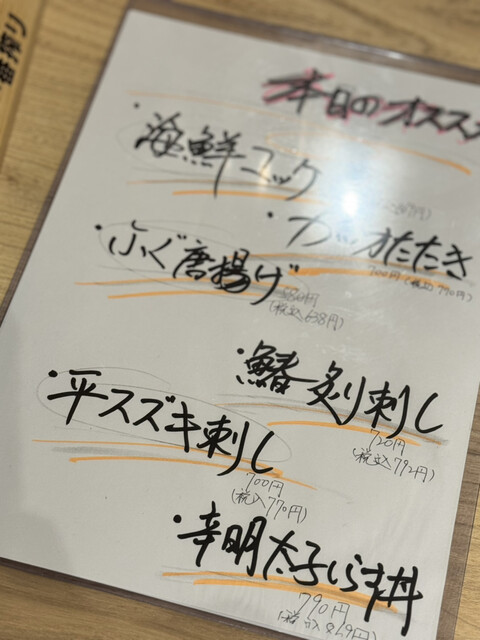 本日のオススメ
・海鮮ユッケ
・カツオたたき
700円(税込770円)
・ふぐ唐揚げ
580円
(税込638円)
・鰆炙り刺し
720円
(税込792円)
・平スズキ刺し
700円
(税込770円)
・辛明太子しらす丼
790円